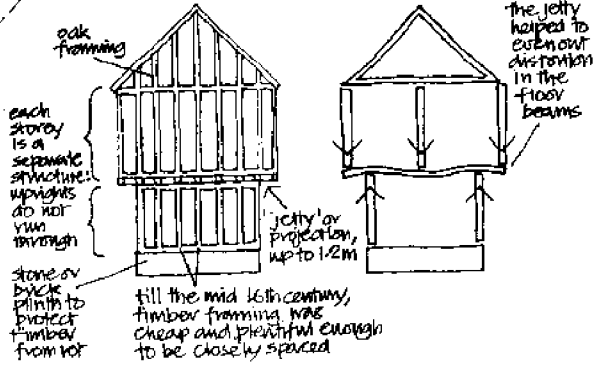 oak
framing
each
storey
is a
separate
structure:
uprights
do not
run
through
stone or
brick
plinth to
protect
timber
from rot
till the mid 16th century,
timber framing was
cheap and plentiful enough
to be closely spaced
'jetty' or
projection,
up to 1·2m
the jetty
helped to
even out
distortion
in the
floor
beams